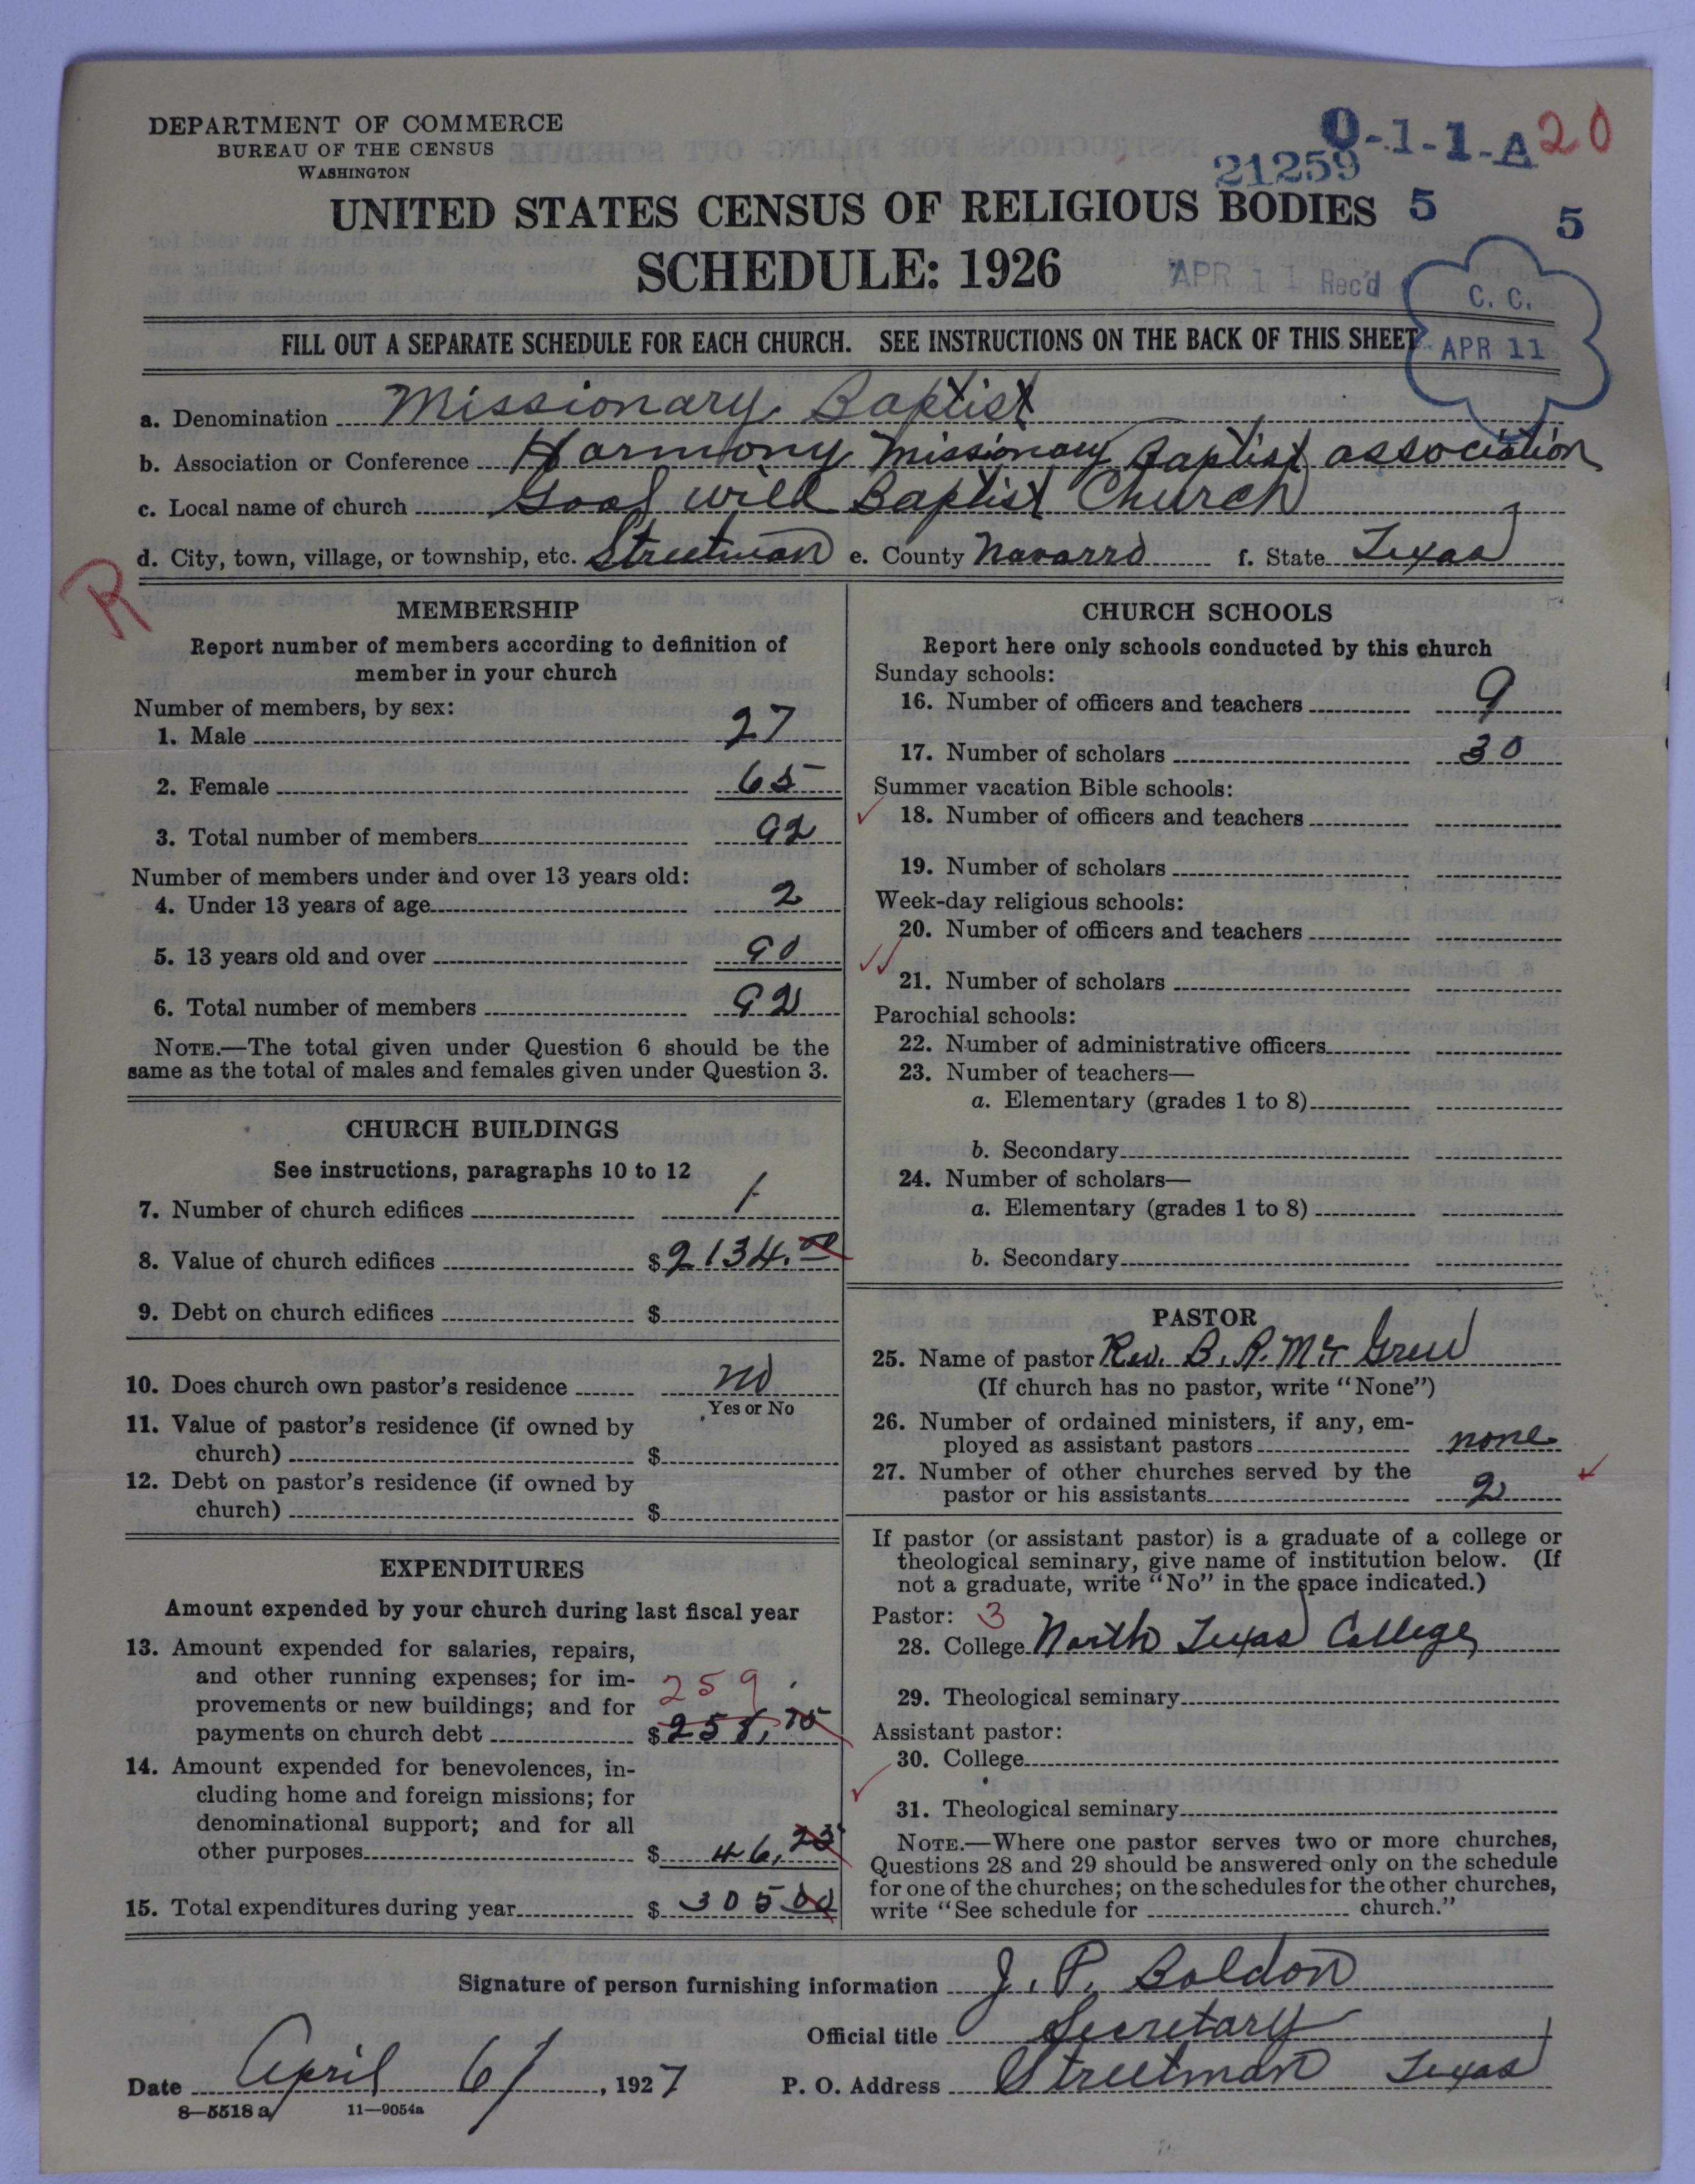 DEPARTMENT OF COMMERCE
BUREAU OF THE CENSUS
WASHINGTON
0-1-1-A 20
21259
UNITED STATES CENSUS OF RELIGIOUS BODIES 5 5
SCHEDULE: 1926
APR 11 Rec'd
C. C.
APR 11
FILL OUT A SEPARATE SCHEDULE FOR EACH CHURCH. SEE INSTRUCTIONS ON THE BACK OF THIS SHEET
a. Denomination Missionary Baptist
b. Association or Conference Harmony Missionary Baptist association
c. Local name of church Good will Baptist Church
d. City, town, village, or township, etc. Streetman e. County Navarro f. State Texas
R
MEMBERSHIP
Report number of members according to definition of
member in your church
Number of members, by sex:
1. Male 27
2. Female 65
3. Total number of members 92
Number of members under and over 13 years old:
4. Under 13 years of age 2
5. 13 years old and over 90
6. Total number of members 92
NOTE.—The total given under Question 6 should be the
same as the total of males and females given under Question 3.
CHURCH BUILDINGS
See instructions, paragraphs 10 to 12
7. Number of church edifices 1
8. Value of church edifices $2134.00
9. Debt on church edifices $
10. Does church own pastor's residence no
Yes or No
11. Value of pastor's residence (if owned by
church) $
12. Debt on pastor's residence (if owned by
church) $
EXPENDITURES
Amount expended by your church during last fiscal year
13. Amount expended for salaries, repairs,
and other running expenses; for im-
provements or new buildings; and for 259
payments on church debt $258.75
14. Amount expended for benevolences, in-
cluding home and foreign missions; for
denominational support; and for all
other purposes $46.25
15. Total expenditures during year $305 00
CHURCH SCHOOLS
Report here only schools conducted by this church
Sunday schools:
16. Number of officers and teachers 9
17. Number of scholars 30
Summer vacation Bible schools:
18. Number of officers and teachers
19. Number of scholars
Week-day religious schools:
20. Number of officers and teachers
21. Number of scholars
Parochial schools:
22. Number of administrative officers
23. Number of teachers—
a. Elementary (grades 1 to 8)
b. Secondary
24. Number of scholars—
a. Elementary (grades 1 to 8)
b. Secondary
PASTOR
25. Name of pastor Rev. B. R. Mc Grew
(If church has no pastor, write "None")
26. Number of ordained ministers, if any, em-
ployed as assistant pastors none
27. Number of other churches served by the
pastor or his assistants 2
If pastor (or assistant pastor) is a graduate of a college or
theological seminary, give name of institution below. (If
not a graduate, write "No" in the space indicated.)
Pastor: 3
28. College North Texas College
29. Theological seminary
Assistant pastor:
30. College
31. Theological seminary
NOTE.—Where one pastor serves two or more churches,
Questions 28 and 29 should be answered only on the schedule
for one of the churches; on the schedules for the other churches,
write "See schedule for church."
Signature of person furnishing information J. P. Boldon
Official title Secretary
Date April 6/, 1927 P. O. Address Streetman Texas
8—5518 a 11—9054a